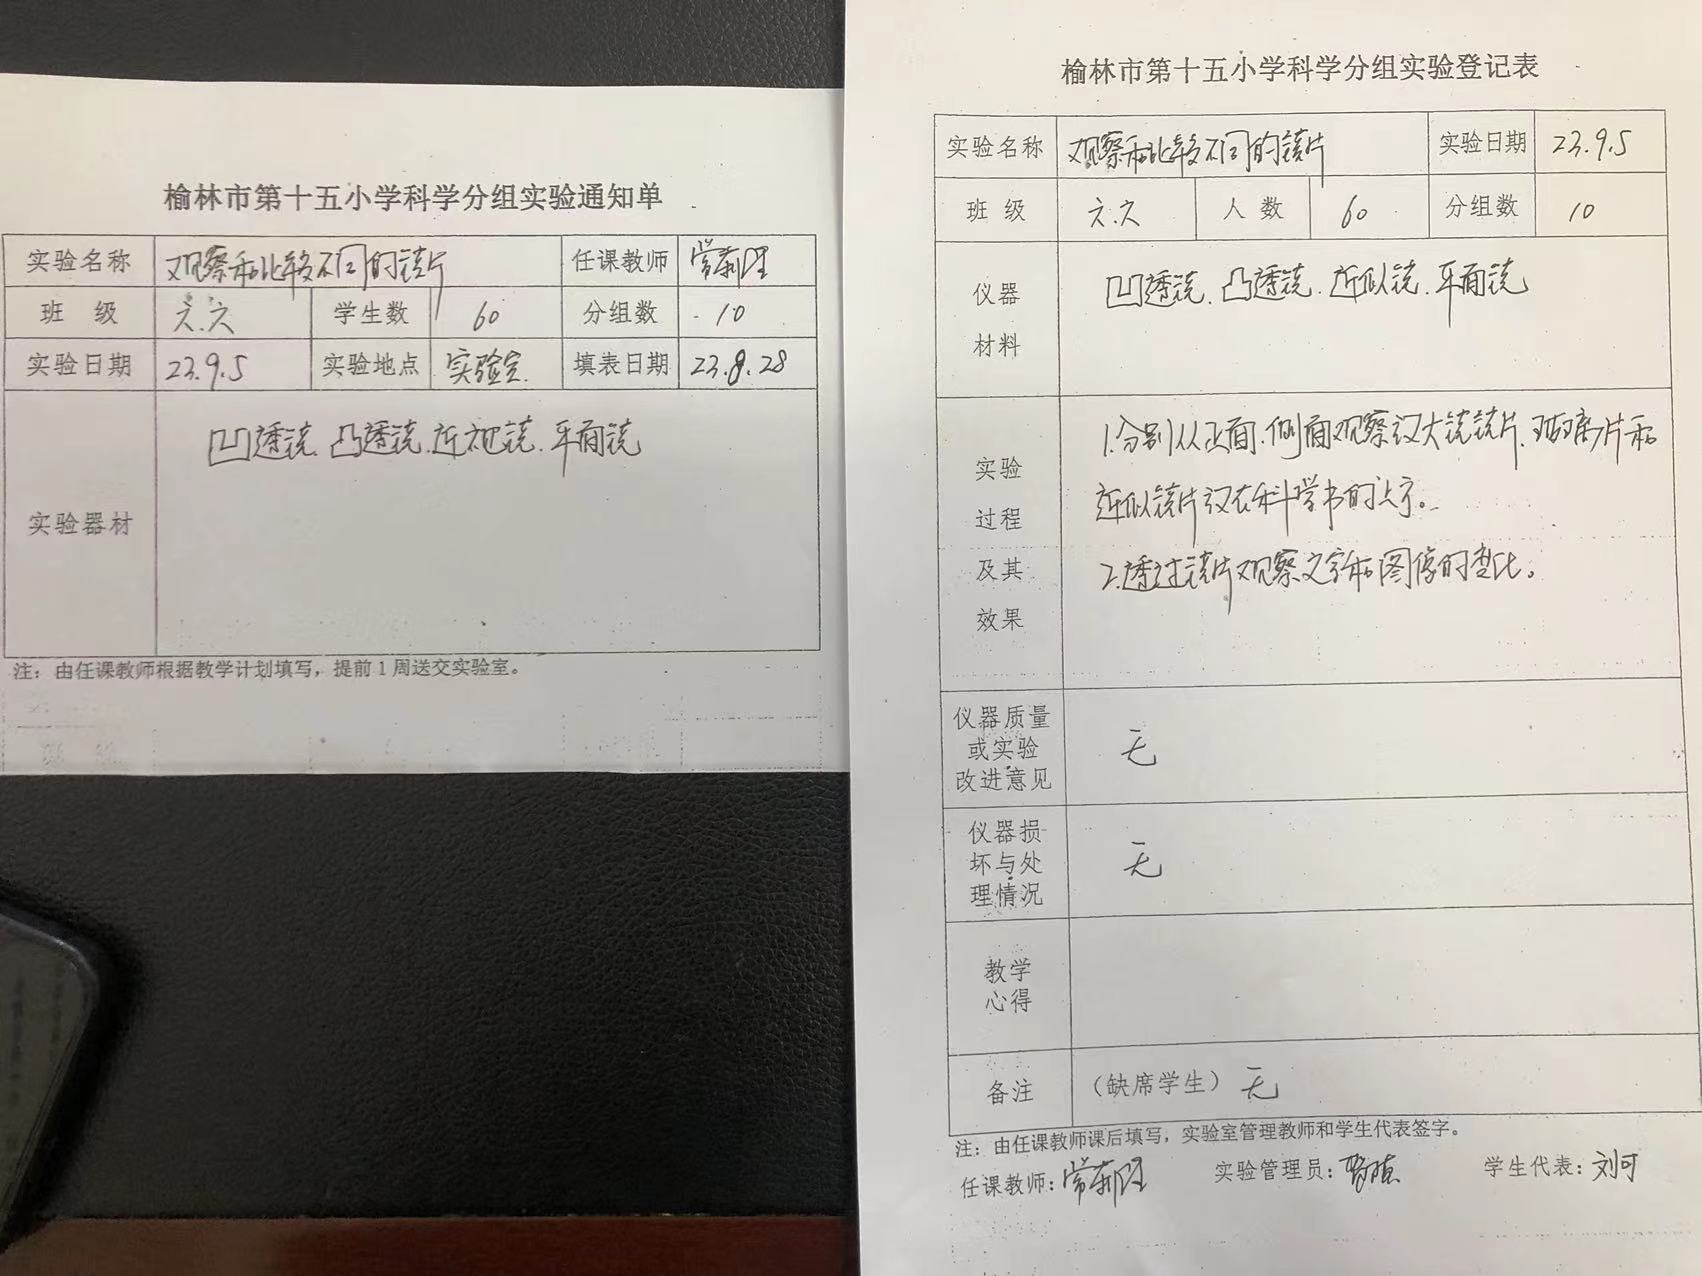 榆林市第十五小学科学分组实验通知单
实验名称 观察和比较不同的镜片 任课教师 常
班 级 六.六 学生数 60 分组数 10
实验日期 23.9.5 实验地点 实验室 填表日期 23.8.28
实验器材 凹透镜.凸透镜.近视镜.平面镜
注：由任课教师根据教学计划填写，提前1周送交实验室。
榆林市第十五小学科学分组实验登记表
实验名称 观察和比较不同的镜片 实验日期 23.9.5
班 级 六.六 人 数 60 分组数 10
仪器
材料
凹透镜.凸透镜.近似镜.平面镜
实验
过程
及其
效果
1.分别从正面.侧面观察放大镜镜片.玻璃片和
近似镜片放在科学书的上方。
2.透过镜片观察文字和图像的变化。
仪器质量
或实验
改进意见
无
仪器损
坏与处
理情况
无
教学
心得
备注 （缺席学生）无
注：由任课教师课后填写，实验室管理教师和学生代表签字。
任课教师：常 实验管理员： 学生代表：刘可